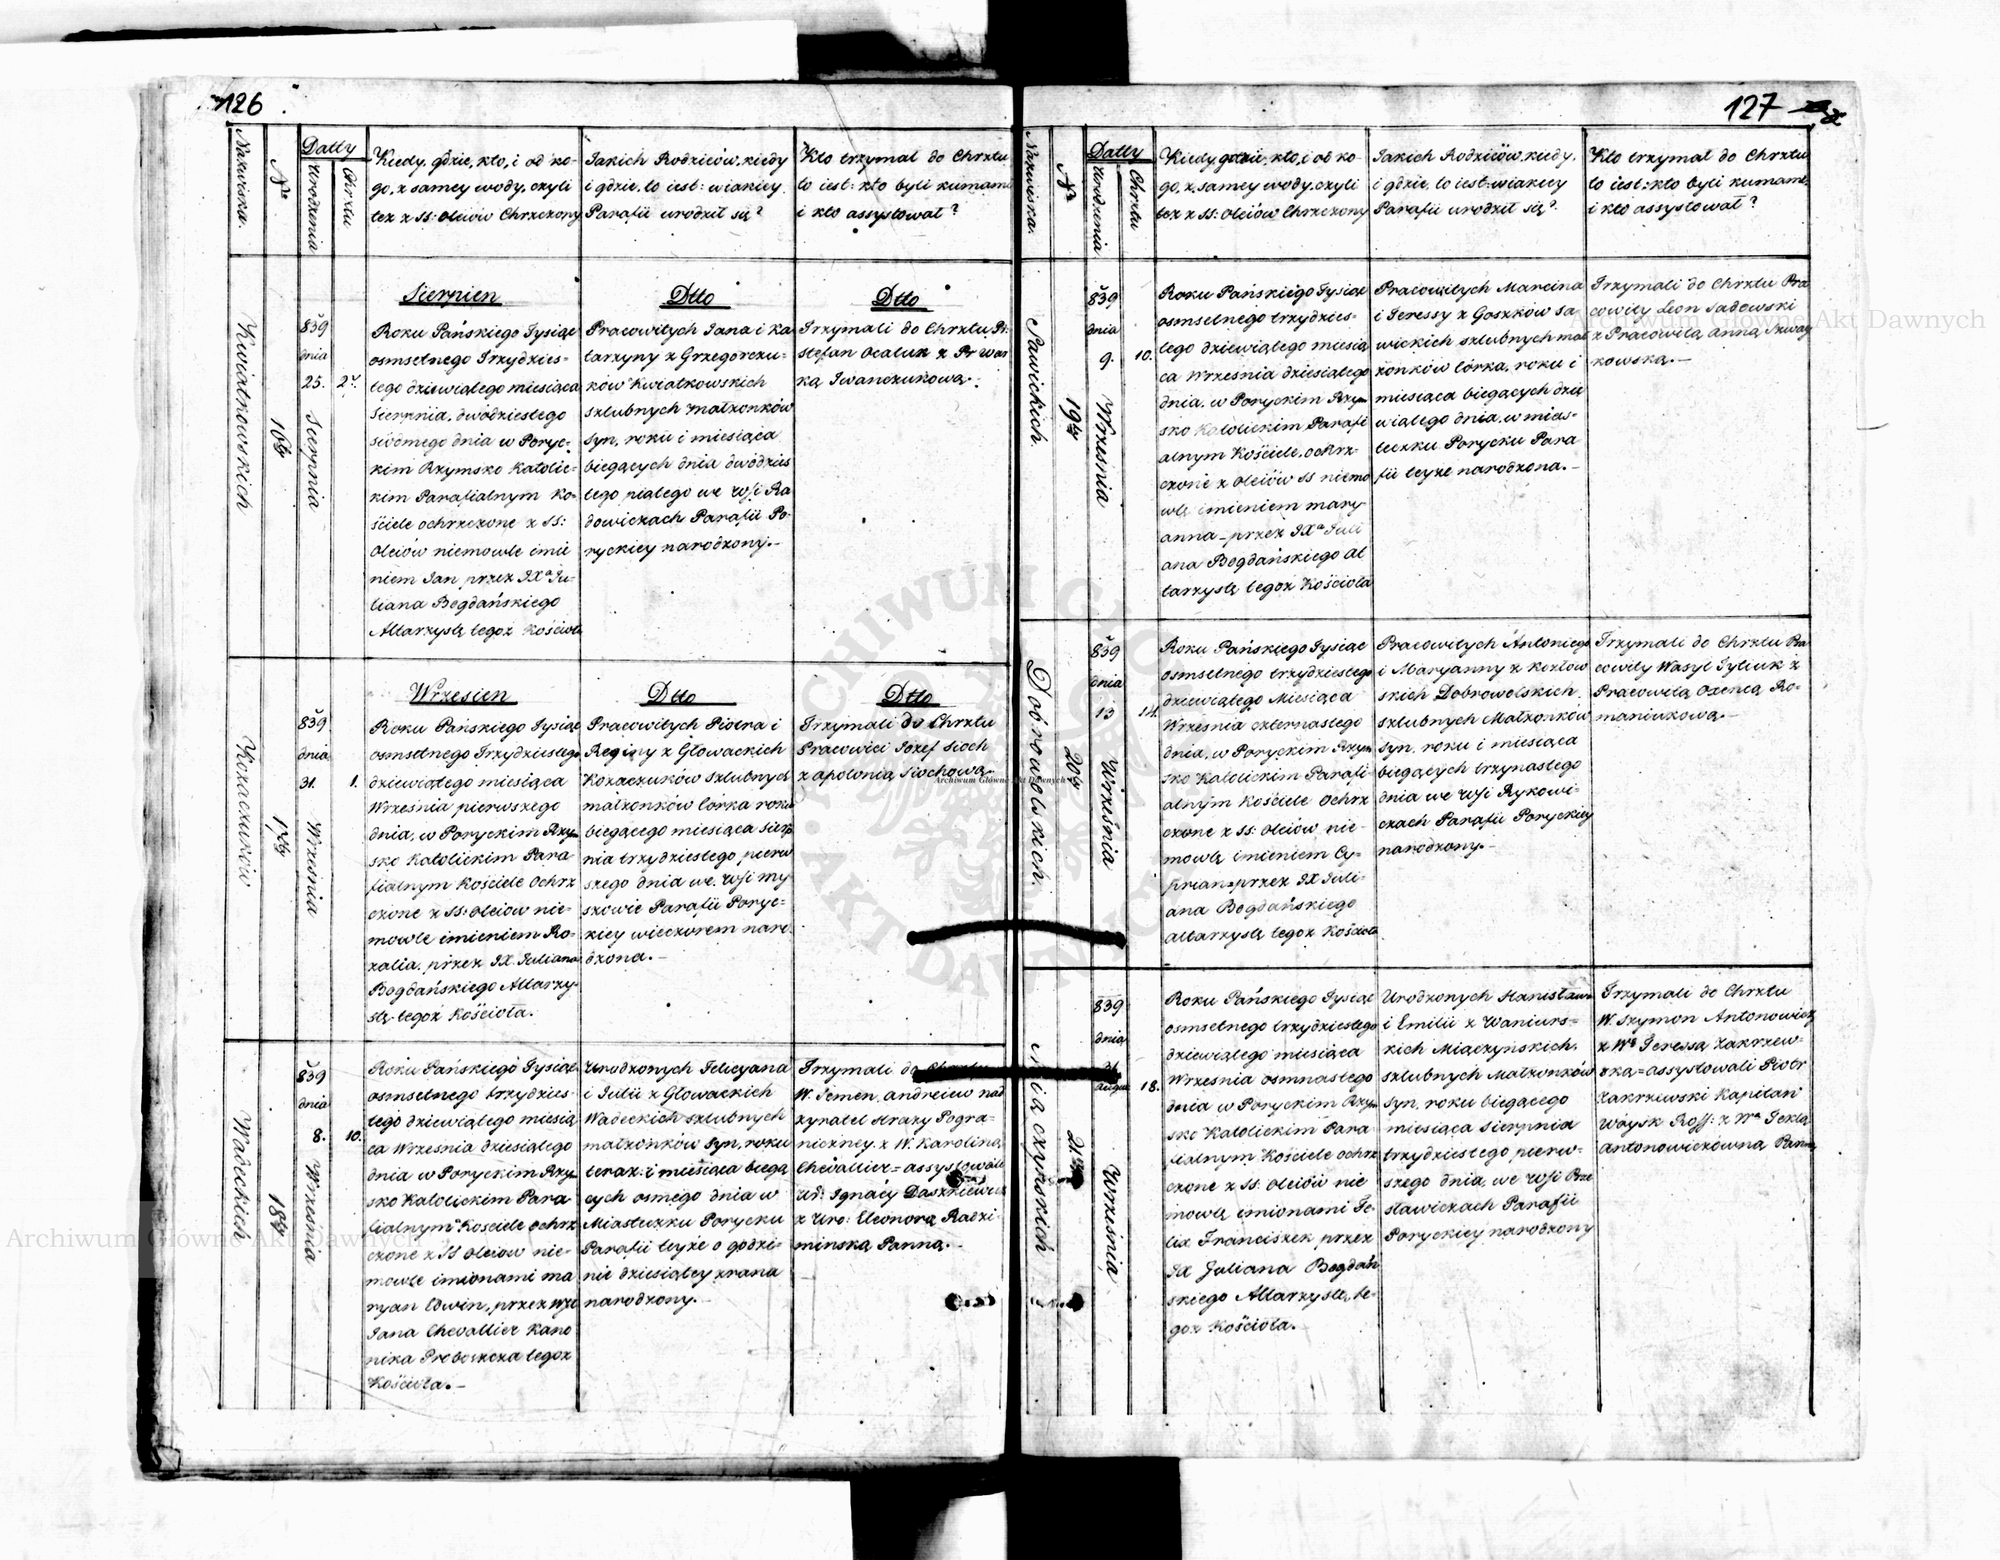 126
Nazwiska.
Nr
Datty
Urodzenia
Chrztu
Kiedy, gdzie, kto, i od ko-
go, z samey wody, czyli
też z SS: Oleiów Chrzczony
Jakich Rodziców, kiedy
i gdzie, to iest: w iakiey
Parafii urodził się?
Kto trzymał do Chrztu
to iest: kto byli kumami
i kto assystował?
Kwiatkowskich
16
839
dnia
25.
Sierpnia
Sierpien
Roku Pańskiego Tysiąc
osmsetnego Trzydzies-
tego dziewiątego miesiąca
Sierpnia, dwódziestego
siódmego dnia w Poryc-
kim Rzymsko Katolic-
kim Parafialnym Ko-
ściele ochrzczone z SS:
Oleiów niemowle imie
niem Jan przez JXa Ju-
liana Bogdańskiego
Altarzystę tegoż Kościoła
Dtto
Pracowitych Jana i Ka
tarzyny z Grzegorczu-
ków Kwiatkowskich
szlubnych małżonków
syn, roku i miesiąca
biegących dnia dwódzies
tego piątego we Wsi Ra
dowiczach Parafii Po-
ryckiey narodzony.-
Dtto
Trzymali do Chrztu Pr:
Stefan Ocaluk z Pr War
ką Iwanczukową.
Kozaczuków
17
839
dnia
31.
1.
Września
Wrzesien
Roku Pańskiego Tysiąc
osmsetnego Trzydziestego
dziewiątego miesiąca
Września pierwszego
dnia, w Poryckim Rzym
sko Katolickim Para
fialnym Kościele Ochrz
czone z SS: Oleiów nie-
mowle imieniem Ro-
zalia, przez JX. Juliana
Bogdańskiego Altarzy-
stę tegoż Kościoła.
Dtto
Pracowitych Piotra i
Reginy z Głowackich
Kozaczuków szlubnych
małżonków Córka roku
biegącego miesiąca Sierp
nia trzydziestego pierw
szego dnia we Wsi My
szowie Parafii Poryc-
kiey wieczorem naro
dzona.-
Dtto
Trzymali do Chrztu
Pracowici Józef Sioch
z Apolonią Siochową.
Wadeckich
18
839
dnia
8.
10.
Września
Roku Pańskiego Tysiąc
osmsetnego trzydzies-
tego dziewiątego miesią
ca Września dziesiątego
dnia w Poryckim Rzym
sko Katolickim Para
fialnym Kościele Ochrz
czone z SS Oleiow nie-
mowle imionami Ma
ryan Edwin, przez
Jana Chevallier Kano
nika Proboszcza tegoż
Kościoła.-
Urodzonych Felicyana
i Julii z Głowackich
Wadeckich szlubnych
małżonków Syn, roku
teraz: i miesiąca biegą
cych osmego dnia w
Miasteczku Porycku
Parafii teyże o godzi-
nie dziesiątey zrana
narodzony.
Trzymali do Chrztu
W. Semen Andreiew nad
zyratel Strazy Pogra-
niczney. z W. Karoliną
Chevallier=assystowali
Ur: Ignacy Daszkiewicz
z Uro: Eleonorą Radzi-
minską Panną.-
127
Nazwiska.
Nr
Datty
Urodzenia
Chrztu
Kiedy, gdzie, kto, i od ko-
go, z samey wody, czyli
też z SS: Oleiów Chrzczony
Jakich Rodziców, kiedy,
i gdzie, to iest: w iakiey
Parafii urodził się?
Kto trzymał do Chrztu
to iest: kto byli kumami,
i kto assystował?
Sawickich
19
839
dnia
9.
10.
Września
Roku Pańskiego Tysiąc
osmsetnego trzydzies-
tego dziewiątego miesią
ca Września dziesiątego
dnia, w Poryckim Rzym
sko Katolickim Parafi
alnym Kościele, ochrz-
czone z Oleiów SS niemo
wlę imieniem Mary
anna-przez JXa Juli
ana Bogdańskiego Al
tarzystę tegoż Kościoła
Pracowitych Marcina
i Teressy z Goszków Sa
wickich szlubnych mał
żonków Córka, roku i
miesiąca biegących dzie
wiątego dnia, w mias-
teczku Porycku Para
fii teyże narodzona.-
Trzymali do Chrztu Pra
cowity Leon Sadowski
z Pracowitą Anną Szway
kowską.-
Dobrowolskich.
20
839
dnia
13
14.
Września
Roku Pańskiego Tysiąc
osmsetnego trzydziestego
dziewiątego Miesiąca
Września czternastego
dnia, w Poryckim Rzym
sko Katolickim Parafi-
alnym Kościele Ochrz
czone z SS: Oleiów nie-
mowlę imieniem Cy-
prian=przez JX Juli-
ana Bogdańskiego
altarzystę tegoż Kościoła
Pracowitych Antoniego
i Maryanny z Kozłow
skich Dobrowolskich
szlubnych Małżonków
syn, roku i miesiąca
biegących trzynastego
dnia we Wsi Rykowi-
czach Parafii Poryckiey
narodzony.-
Trzymali do Chrztu Pra
cowity Wasyl Tyliuk z
Pracowitą Oxenią Ro-
maniukową.-
Miączynskich
21
839
dnia
31
18.
Września
Roku Pańskiego Tysiąc
osmsetnego trzydziestego
dziewiątego miesiąca
Września osmnastego
dnia w Poryckim Rzym
sko Katolickim Para
fialnym Kościele ochrz
czone z SS. Oleiów nie
mowlę imionami Fe-
lix Franciszek przez
JX Juliana Bogdań
skiego Altarzystę te-
goż Kościoła.
Urodzonych Stanisława
i Emilii z Waniurs=
kich Miączynskich,
szlubnych Małżonków
syn, roku biegącego
miesiąca Sierpnia
trzydziestego pierw-
szego dnia, we Wsi Prze
sławiczach Parafii
Poryckiey narodzony
Trzymali do Chrztu
W. Szymon Antonowicz
z Wą Teressą Zakrzew-
ską=assystowali Piotr
Zakrzewski Kapitan
Woysk Ross: z Wą Teklą
Antonowiczówną Panną
Archiwum Główne Akt Dawnych
Archiwum Główne Akt Dawnych
Archiwum Główne Akt Dawnych